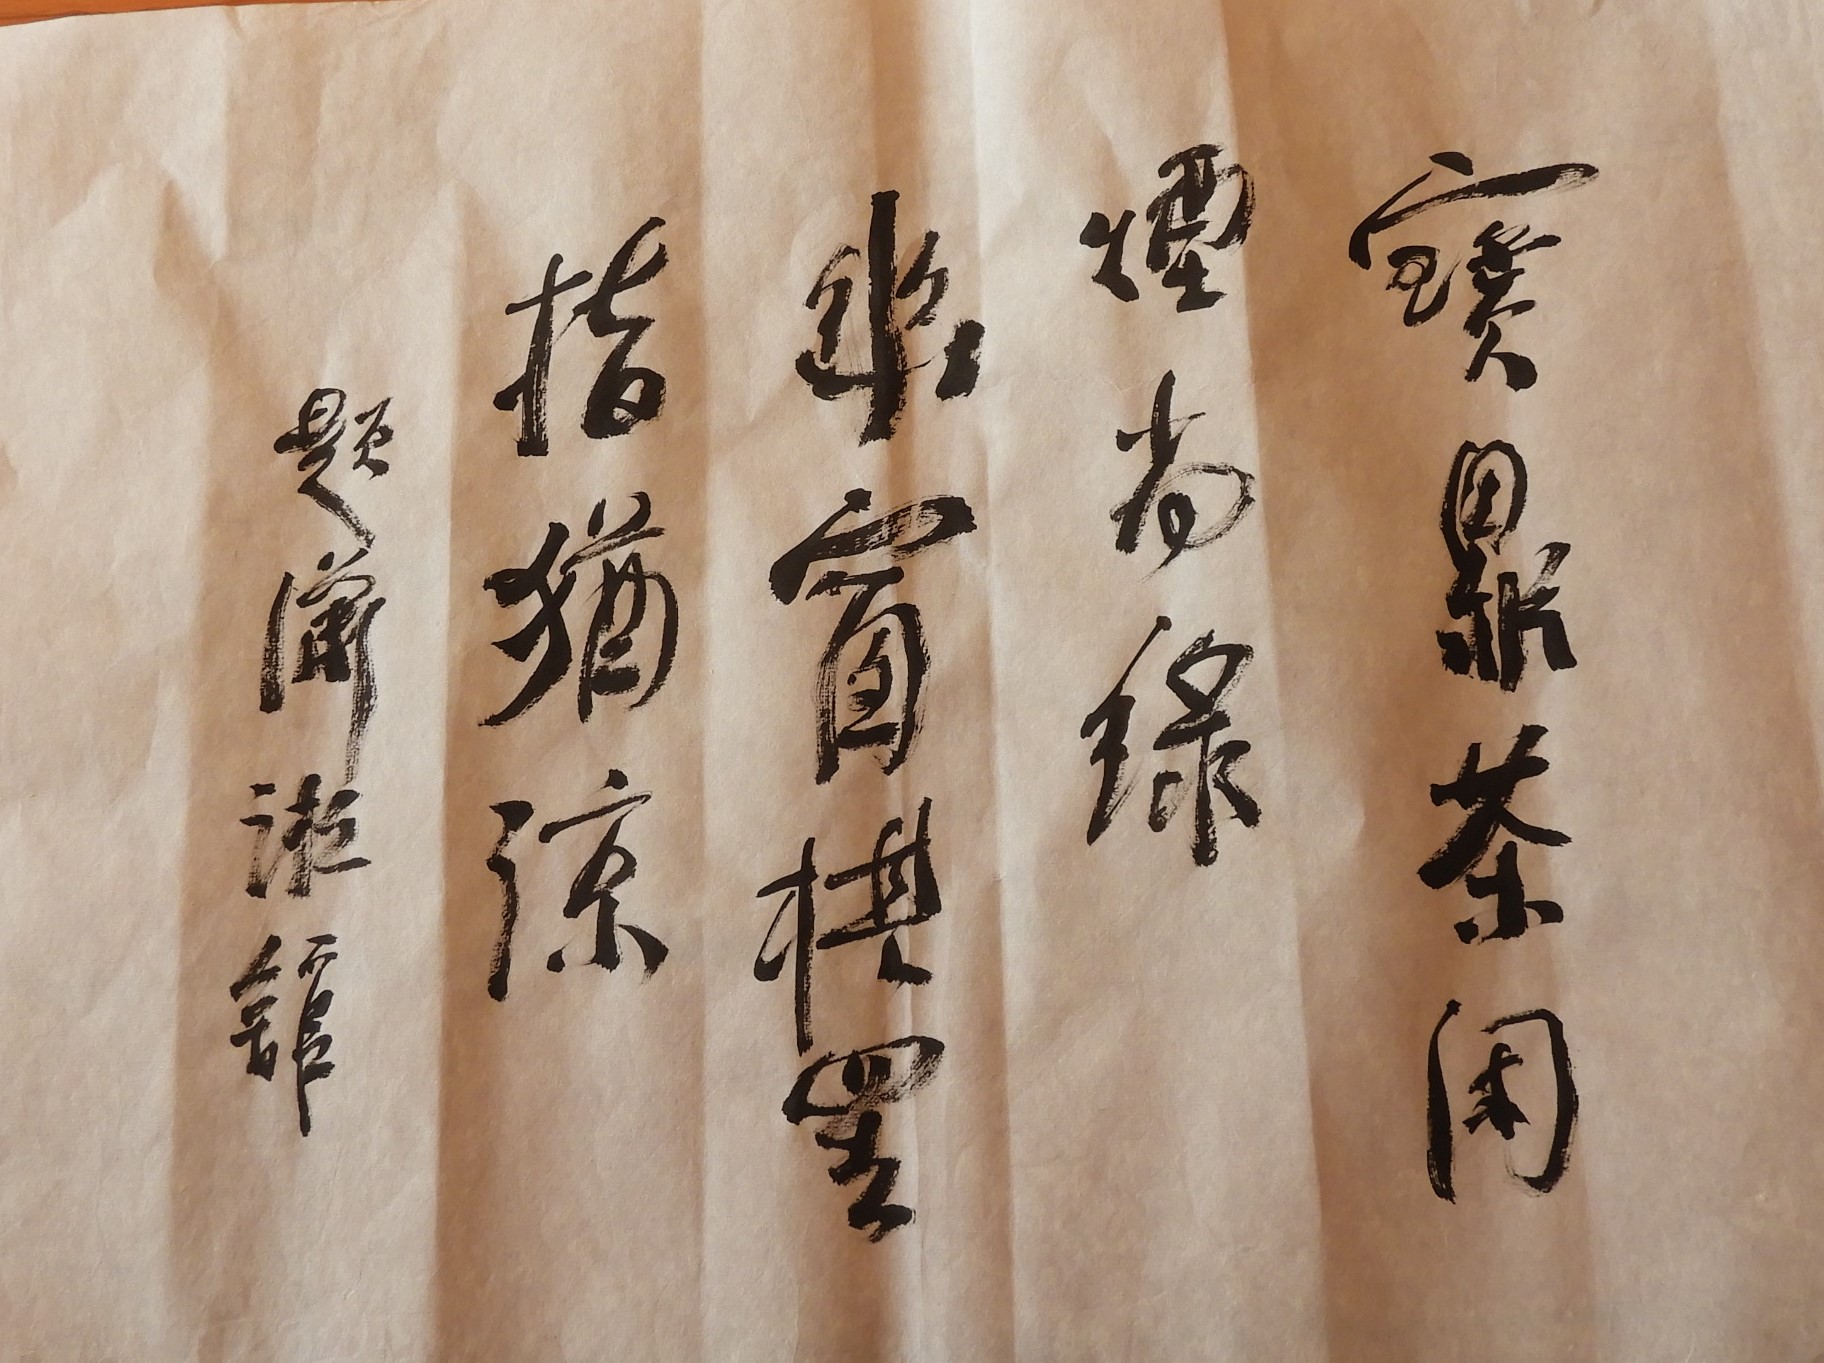 寶鼎茶閑
煙尚綠
幽窗棋罷
指猶涼
題瀟湘舘